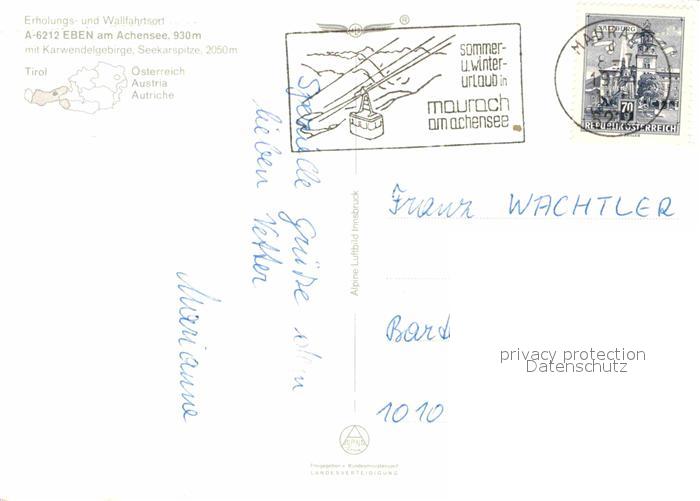 Erholungs- und Wallfahrtsort
A-6212 EBEN am Achensee, 930m
mit Karwendelgebirge, Seekarspitze, 2050m
Tirol
Österreich
Austria
Autriche
sommer-
u.winter-
urlaub in
maurach
am achensee
SALZBURG
70
REPUBLIK ÖSTERREICH
Spezielle Grüße dem
lieben Vetter
Marianne
Alpine Luftbild Innsbruck
Franz WACHTLER
privacy protection
Datenschutz
1010
Freigegeben v. Bundesministerium f.
LANDESVERTEIDIGUNG